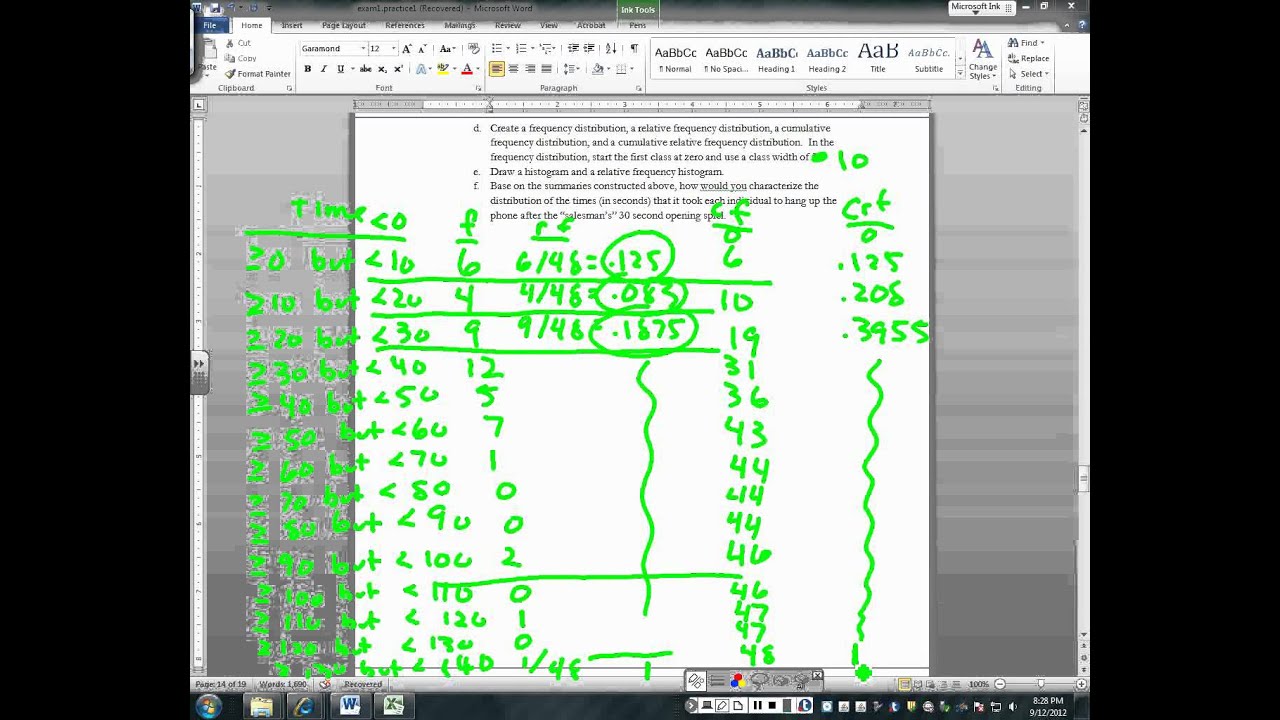 exam1.practice1 (Recovered) - Microsoft Word
Ink Tools
Microsoft Ink
File Home Insert Page Layout References Mailings Review View Acrobat Pens
Paste
Cut
Copy
Format Painter
Clipboard
Garamond 12
Font
Paragraph
AaBbCc AaBbCc AaBbC AaBbCc AaB AaBbCc.
¶ Normal ¶ No Spaci... Heading 1 Heading 2 Title Subtitle
Change Styles
Styles
Find
Replace
Select
Editing
d. Create a frequency distribution, a relative frequency distribution, a cumulative
frequency distribution, and a cumulative relative frequency distribution. In the
frequency distribution, start the first class at zero and use a class width of 10
e. Draw a histogram and a relative frequency histogram.
f. Base on the summaries constructed above, how would you characterize the
distribution of the times (in seconds) that it took each individual to hang up the
phone after the "salesman's" 30 second opening spiel.
Time f rf cf crf
<0 0 0
≥0 but <10 6 6/48=.125 6 .125
≥10 but <20 4 4/48=.083 10 .208
≥20 but <30 9 9/48=.1875 19 .3955
≥30 but <40 12 31
≥40 but <50 5 36
≥50 but <60 7 43
≥60 but <70 1 44
≥70 but <80 0 44
≥80 but <90 0 44
≥90 but <100 2 46
≥100 but <110 0 46
≥110 but <120 1 47
≥120 but <130 0 47
≥130 but <140 1/48 1 48 1
Page: 14 of 19 Words: 1,690 Recovered 100%
8:28 PM
9/12/2012